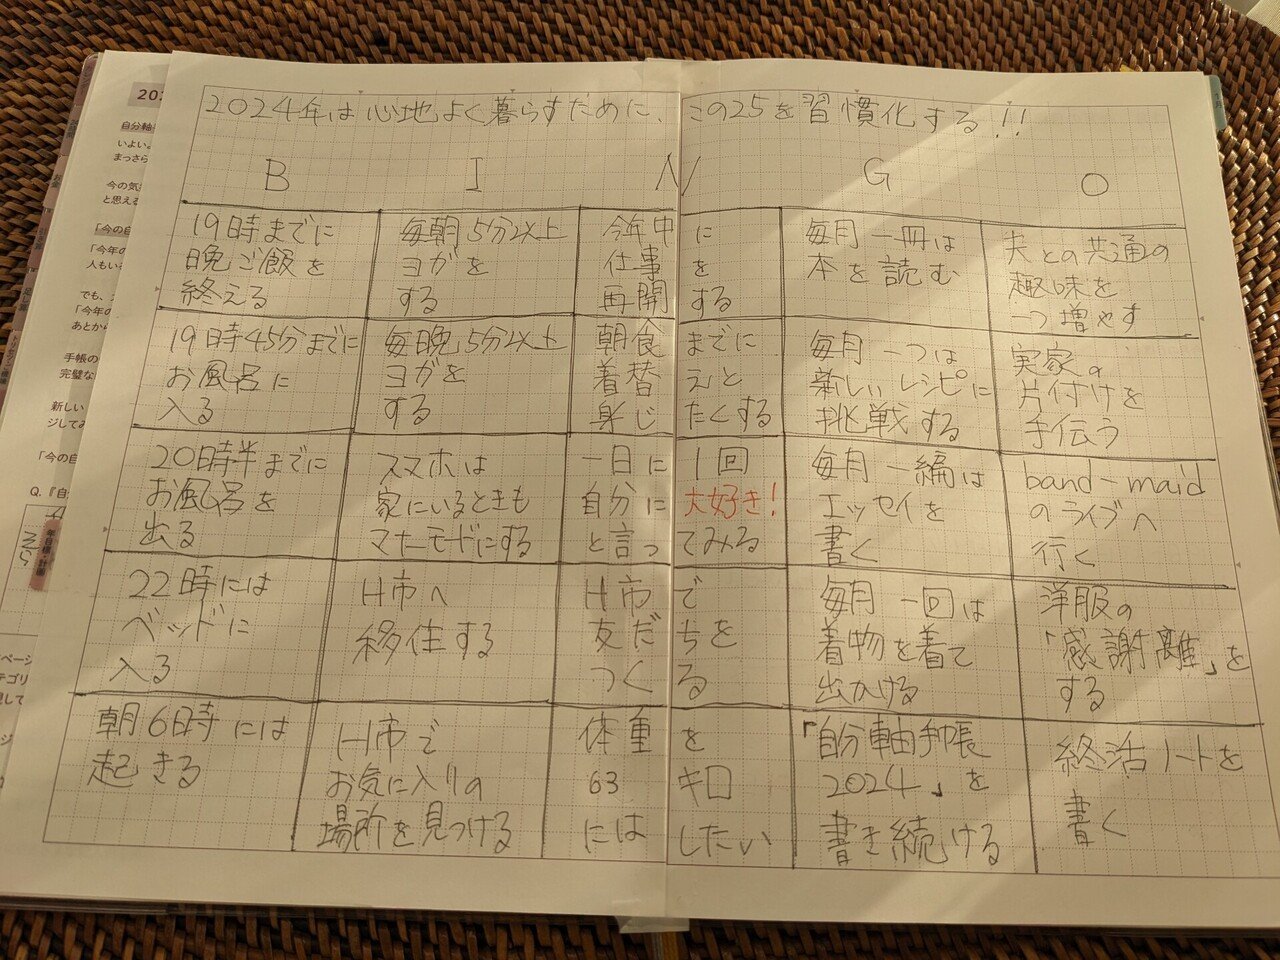 2024年は心地よく暮らすために、この25を習慣化する!!
B I N G O
19時までに
晩ご飯を
終える
毎朝5分以上
ヨガを
する
今年中に
仕事を
再開する
毎月一冊は
本を読む
夫との共通の
趣味を
一つ増やす
19時45分までに
お風呂に
入る
毎晩5分以上
ヨガを
する
朝食までに
着替えと
身じたくする
毎月一つは
新しいレシピに
挑戦する
実家の
片付けを
手伝う
20時半までに
お風呂を
出る
スマホは
家にいるときも
マナーモードにする
一日に1回
自分に大好き!
と言ってみる
毎月一編は
エッセイを
書く
band-maid
のライブへ
行く
22時には
ベッドに
入る
H市へ
移住する
H市で
友だちを
つくる
毎月一回は
着物を着て
出かける
洋服の
「感謝離」を
する
朝6時には
起きる
H市で
お気に入りの
場所を見つける
体重を
63キロ
にはしたい
「自分軸手帳
2024」を
書き続ける
終活ノートを
書く
202
自分軸
いよい。
まっさら
今の気
と思える
「今の自
「今年の
人もい
でも、
「今年の
あとから
手帳の
完璧な
新しい
ジしてみ
「今の自
Q.『自
年目標・計画